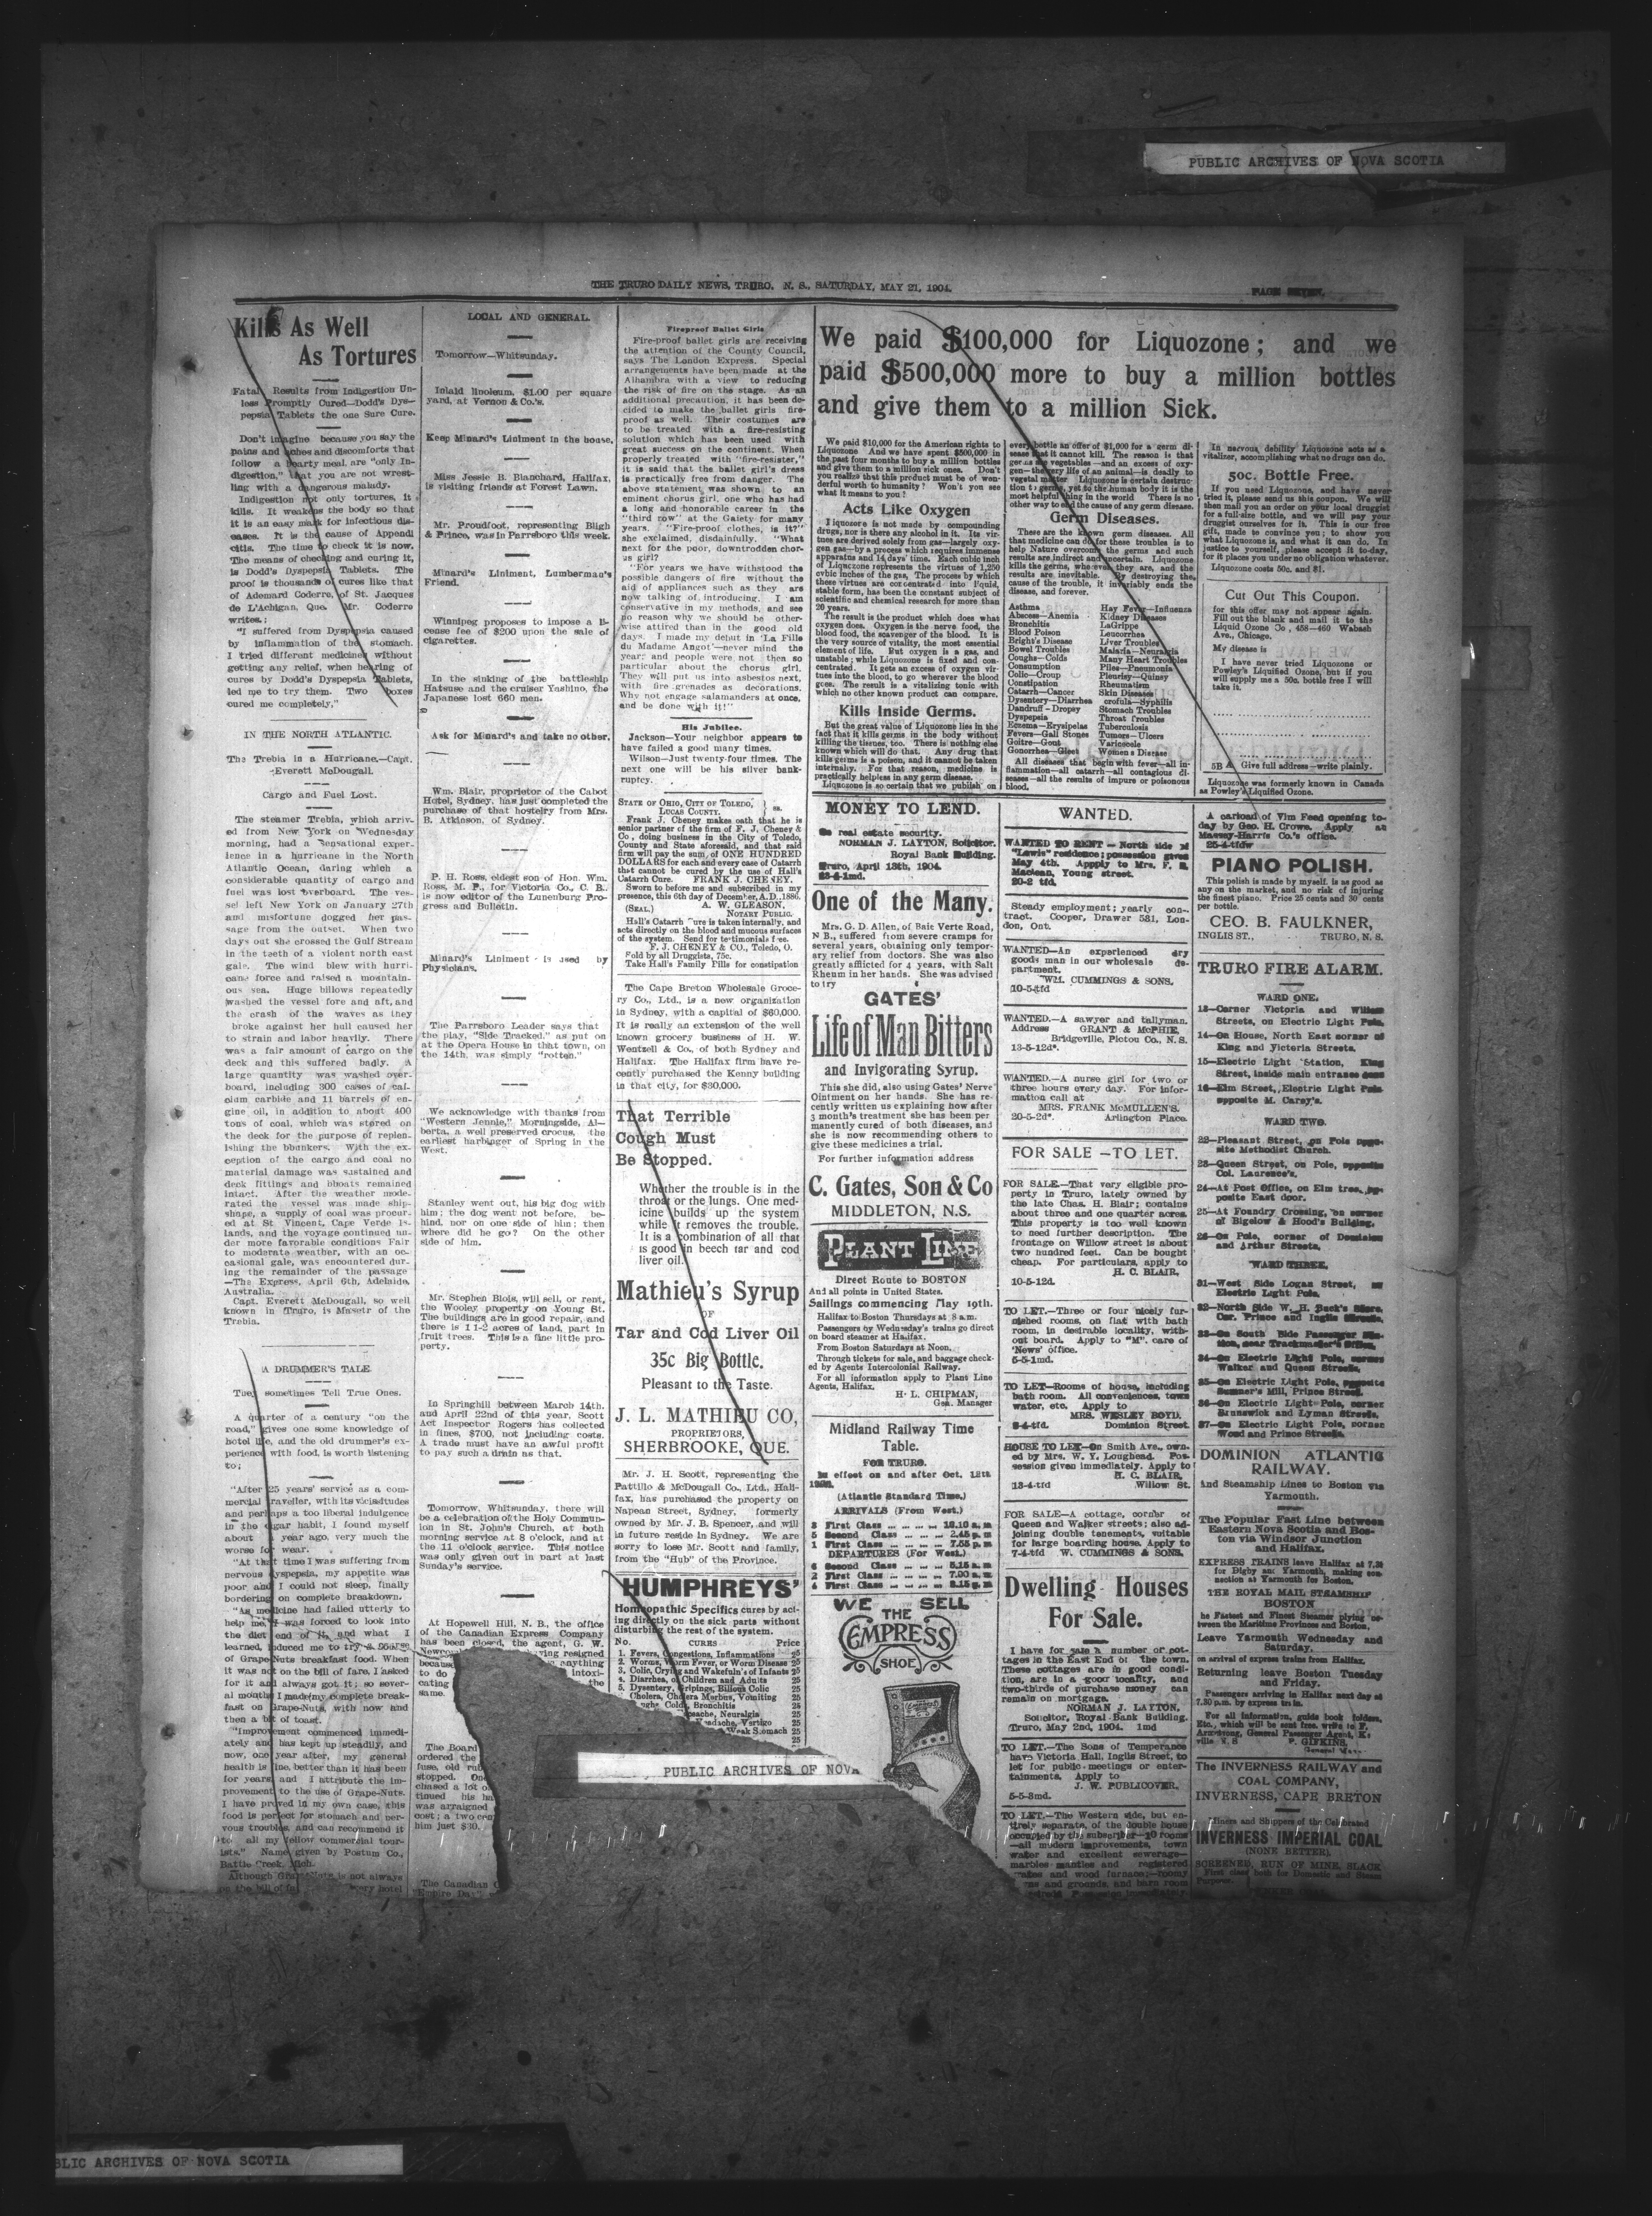 PUBLIC ARCHIVES OF NOVA SCOTIA
THE TRURO DAILY NEWS, TRURO, N. S., SATURDAY, MAY 21, 1904.
PAGE SEVEN.
Kills As Well
As Tortures
Fatal Results from Indigestion Un-
less Promptly Cured—Dodd's Dys-
pepsia Tablets the one Sure Cure.
Don't imagine because you say the
pains and aches and discomforts that
follow a hearty meal, are "only In-
digestion," that you are not wrest-
ling with a dangerous malady.
Indigestion not only tortures, it
kills. It weakens the body so that
it is an easy mark for infectious dis-
eases. It is the cause of Appendi
citis. The time to check it is now.
The means of checking and curing it,
is Dodd's Dyspepsia Tablets. The
proof is thousands of cures like that
of Ademard Coderre, of St. Jacques
de L'Achigan, Que. Mr. Coderre
writes:
"I suffered from Dyspepsia caused
by inflammation of the stomach.
I tried different medicines without
getting any relief, when hearing of
cures by Dodd's Dyspepsia Tablets,
led me to try them. Two boxes
cured me completely."
IN THE NORTH ATLANTIC.
The Trebia in a Hurricane.—Capt.
Everett McDougall.
Cargo and Fuel Lost.
The steamer Trebia, which arriv-
ed from New York on Wednesday
morning, had a sensational exper-
ience in a hurricane in the North
Atlantic Ocean, daring which a
considerable quantity of cargo and
fuel was lost overboard. The ves-
sel left New York on January 27th
and misfortune dogged her pas-
sage from the outset. When two
days out she crossed the Gulf Stream
in the teeth of a violent north east
gale. The wind blew with hurri-
cane force and raised a mountain-
ous sea. Huge billows repeatedly
washed the vessel fore and aft, and
the crash of the waves as they
broke against her hull caused her
to strain and labor heavily. There
was a fair amount of cargo on the
deck and this suffered badly. A
large quantity was washed over-
board, including 300 cases of cal-
cium carbide and 11 barrels of en-
gine oil, in addition to about 400
tons of coal, which was stored on
the deck for the purpose of replen-
ishing the bbunkers. With the ex-
ception of the cargo and coal no
material damage was sustained and
deck fittings and bboats remained
intact. After the weather mode-
rated the vessel was made ship-
shape, a supply of coal was procur-
ed at St Vincent, Cape Verde Is-
lands, and the voyage continued un-
der more favorable conditions Fair
to moderate weather, with an oc-
casional gale, was encountered dur-
ing the remainder of the passage
—The Express, April 6th, Adelaide,
Australia.
Capt. Everett McDougall, so well
known in Truro, is Masetr of the
Trebia.
A DRUMMER'S TALE
They sometimes Tell True Ones.
A quarter of a century "on the
road," gives one some knowledge of
hotel life, and the old drummer's ex-
perience with food, is worth listening
to;
"After 25 years' service as a com-
mercial traveller, with its vicissitudes
and perhaps a too liberal indulgence
in the cigar habit, I found myself
about a year ago, very much the
worse for wear.
"At that time I was suffering from
nervous dyspepsia, my appetite was
poor and I could not sleep, finally
bordering on complete breakdown.
"As medicine had failed utterly to
help me, I was forced to look into
the diet end of it, and what I
learned, induced me to try a course
of Grape-Nuts breakfast food. When
it was not on the bill of fare, I asked
for it and always got it; so sever-
al months I made my complete break-
fast on Grape-Nuts, with now and
then a bit of toast.
"Improvement commenced immedi-
ately and has kept up steadily, and
now, one year after, my general
health is fine, better than it has been
for years and I attribute the im-
provement to the use of Grape-Nuts.
I have proved in my own case, this
food is perfect for stomach and ner-
vous troubles, and can recommend it
to all my fellow commercial tour-
ists." Name given by Postum Co.,
Battle Creek, Mich.
Although Grape-Nuts is not always
on the bill of hotel
LOCAL AND GENERAL.
Tomorrow—Whitsunday.
Inlaid linoleum, $1.00 per square
yard, at Vernon & Co.'s.
Keep Minard's Liniment in the house.
Miss Jessie B. Blanchard, Halifax,
is visiting friends at Forest Lawn.
Mr. Proudfoot, representing Bligh
& Prince, was in Parrsboro this week.
Minard's Liniment, Lumberman's
Friend.
Winnipeg proposes to impose a li-
cense fee of $200 upon the sale of
cigarettes.
In the sinking of the battleship
Hatsuse and the cruiser Yashino, the
Japanese lost 660 men.
Ask for Minard's and take no other.
Wm. Blair, proprietor of the Cabot
Hotel, Sydney, has just completed the
purchase of that hostelry from Mrs.
B. Atkinson, of Sydney.
P. H. Ross, eldest son of Hon. Wm.
Ross, M. P., for Victoria Co., C. B.,
is now editor of the Lunenburg Pro-
gress and Bulletin.
Minard's Liniment is used by
Physicians.
The Parrsboro Leader says that
the play, "Side Tracked," as put on
at the Opera House in that town, on
the 14th, was simply "rotten."
We acknowledge with thanks from
"Western Jennie," Morningside, Al-
berta, a well preserved crocus, the
earliest harbinger of Spring in the
West.
Stanley went out, his big dog with
him; the dog went not before, be-
hind, nor on one side of him; then
where did he go? On the other
side of him.
Mr. Stephen Blois, will sell, or rent,
the Wooley property on Young St.
The buildings are in good repair, and
there is 1 1-2 acres of land, part in
fruit trees. This is a fine little pro-
perty.
In Springhill between March 14th.
and April 22nd of this year, Scott
Act Inspector Rogers has collected
in fines, $700, not including costs.
A trade must have an awful profit
to pay such a drain as that.
Tomorrow, Whitsunday, there will
be a celebration of the Holy Commun-
ion in St. John's Church, at both
morning service at 8 o'clock, and at
the 11 o'clock service. This notice
was only given out in part at last
Sunday's service.
At Hopewell Hill, N. B., the office
of the Canadian Express Company
has been closed, the agent, G. W.
Newcomb ving resigned
becaus anything
to do intoxi-
cating the
same.
The Board
ordered the
fuse, old
stopped. One
chased a lot o
tinued his ha
was arraigned
cost; a two cen
him just $30.
The Canadian C
"Empire Day"
Fireproof Ballet Girls
Fire-proof ballet girls are receiving
the attention of the County Council,
says The London Express. Special
arrangements have been made at the
Alhambra with a view to reducing
the risk of fire on the stage. As an
additional precaution, it has been de-
cided to make the ballet girls fire-
proof as well. Their costumes are
to be treated with a fire-resisting
solution which has been used with
great success on the continent. When
properly treated with "fire-resister,"
it is said that the ballet girl's dress
is practically free from danger. The
above statement was shown to an
eminent chorus girl, one who has had
a long and honorable career in the
"third row" at the Gaiety for many
years. "Fire-proof clothes, is it?"
she exclaimed, disdainfully. "What
next for the poor, downtrodden chor-
us girl?
"For years we have withstood the
possible dangers of fire without the
aid of appliances such as they are
now talking of introducing. I am
conservative in my methods, and see
no reason why we should be other-
wise attired than in the good old
days. I made my debut in 'La Fille
du Madame Angot'—never mind the
year; and people were not then so
particular about the chorus girl.
They will put us into asbestos next,
with fire-grenades as decorations.
Why not engage salamanders at once,
and be done with it!"
His Jubilee.
Jackson—Your neighbor appears to
have failed a good many times.
Wilson—Just twenty-four times. The
next one will be his silver bank-
ruptcy.
STATE OF OHIO, CITY OF TOLEDO, } ss.
LUCAS COUNTY.
Frank J. Cheney makes oath that he is
senior partner of the firm of F. J. Cheney &
Co, doing business in the City of Toledo,
County and State aforesaid, and that said
firm will pay the sum of ONE HUNDRED
DOLLARS for each and every case of Catarrh
that cannot be cured by the use of Hall's
Catarrh Cure. FRANK J. CHENEY.
Sworn to before me and subscribed in my
presence, this 6th day of December, A.D., 1886.
A. W. GLEASON,
(SEAL.) NOTARY PUBLIC.
Hall's Catarrh Cure is taken internally, and
acts directly on the blood and mucous surfaces
of the system. Send for testimonials free.
F. J. CHENEY & CO., Toledo, O.
Fold by all Druggists, 75c.
Take Hall's Family Pills for constipation
The Cape Breton Wholesale Groce-
ry Co., Ltd., is a new organization
in Sydney, with a capital of $60,000.
It is really an extension of the well
known grocery business of H. W.
Wentzell & Co., of both Sydney and
Halifax. The Halifax firm have re-
cently purchased the Kenny building
in that city, for $30,000.
That Terrible
Cough Must
Be Stopped.
Whether the trouble is in the
throat or the lungs. One med-
icine builds up the system
while it removes the trouble.
It is a combination of all that
is good in beech tar and cod
liver oil.
Mathieu's Syrup
OF
Tar and Cod Liver Oil
35c Big Bottle.
Pleasant to the Taste.
J. L. MATHIEU CO,
PROPRIETORS,
SHERBROOKE, QUE.
Mr. J. H. Scott, representing the
Pattillo & McDougall Co., Ltd., Hali-
fax, has purchased the property on
Napean Street, Sydney, formerly
owned by Mr. J. B. Spencer, and will
in future reside in Sydney. We are
sorry to lose Mr. Scott and family,
from the "Hub" of the Province.
HUMPHREYS'
Homeopathic Specifics cures by act-
ing directly on the sick parts without
disturbing the rest of the system.
No. CURES Price
1. Fevers, Congestions, Inflammations 25
2. Worms, Worm Fever, or Worm Disease 25
3. Colic, Crying and Wakefuln's of Infants 25
4. Diarrhea, of Children and Adults 25
5. Dysentery, Gripings, Bilious Colic 25
Cholera, Cholera Morbus, Vomiting 25
Coughs Colds, Bronchitis 25
ache, Neuralgia 25
Headache, Vertigo 25
Weak Stomach 25
25
PUBLIC ARCHIVES OF NOVA
We paid $100,000 for Liquozone; and we
paid $500,000 more to buy a million bottles
and give them to a million Sick.
We paid $10,000 for the American rights to
Liquozone And we have spent $500,000 in
the past four months to buy a million bottles
and give them to a million sick ones. Don't
you realize that this product must be of won-
derful worth to humanity? Won't you see
what it means to you?
Acts Like Oxygen
Liquozone is not made by compounding
drugs, nor is there any alcohol in it. Its vir-
tues are derived solely from gas—largely oxy-
gen gas—by a process which requires immense
apparatus and 14 days' time. Each cubic inch
of Liquozone represents the virtues of 1,250
cubic inches of the gas. The process by which
these virtues are concentrated into liquid,
stable form, has been the constant subject of
scientific and chemical research for more than
20 years.
The result is the product which does what
oxygen does. Oxygen is the nerve food, the
blood food, the scavenger of the blood. It is
the very source of vitality, the most essential
element of life. But oxygen is a gas, and
unstable; while Liquozone is fixed and con-
centrated. It gets an excess of oxygen vir-
tues into the blood, to go wherever the blood
goes. The result is a vitalizing tonic with
which no other known product can compare.
Kills Inside Germs.
But the great value of Liquozone lies in the
fact that it kills germs in the body without
killing the tissues, too. There is nothing else
known which will do that. Any drug that
kills germs is a poison, and it cannot be taken
internally. For that reason, medicine is
practically helpless in any germ disease.
Liquozone is so certain that we publish on
every bottle an offer of $1,000 for a germ di-
sease that it cannot kill. The reason is that
germs are vegetables—and an excess of oxy-
gen—the very life of an animal—is deadly to
vegetal matter Liquozone is certain destruc-
tion to germs, yet to the human body it is the
most helpful thing in the world There is no
other way to end the cause of any germ disease.
Germ Diseases.
These are the known germ diseases. All
that medicine can do for these troubles is to
help Nature overcome the germs and such
results are indirect and uncertain. Liquozone
kills the germs, wherever they are, and the
results are inevitable. By destroying the
cause of the trouble, it invariably ends the
disease, and forever.
Asthma
Abscess—Anemia
Bronchitis
Blood Poison
Bright's Disease
Bowel Troubles
Coughs—Colds
Consumption
Colic—Croup
Constipation
Catarrh—Cancer
Dysentery—Diarrhea
Dandruff—Dropsy
Dyspepsia
Eczema—Erysipelas
Fevers—Gall Stones
Goitre—Gout
Gonorrhea—Gleet
Hay Fever—Influenza
Kidney Diseases
LaGrippe
Leucorrhea
Liver Troubles
Malaria—Neuralgia
Many Heart Troubles
Piles—Pneumonia
Pleurisy—Quinsy
Rheumatism
Skin Diseases
crofula—Syphilis
Stomach Troubles
Throat Troubles
Tuberculosis
Tumors—Ulcers
Varicocele
Women's Disease
All diseases that begin with fever—all in-
flammation—all catarrh—all contagious di-
seases—all the results of impure or poisonous
blood.
In nervous debility Liquozone acts as a
vitalizer, accomplishing what no drugs can do.
50c. Bottle Free.
If you need Liquozone, and have never
tried it, please send us this coupon. We will
then mail you an order on your local druggist
for a full-size bottle, and we will pay your
druggist ourselves for it. This is our free
gift, made to convince you; to show you
what Liquozone is, and what it can do. In
justice to yourself, please accept it to-day,
for it places you under no obligation whatever.
Liquozone costs 50c. and $1.
Cut Out This Coupon.
for this offer may not appear again.
Fill out the blank and mail it to the
Liquid Ozone Co, 458-460 Wabash
Ave., Chicago.
My disease is
I have never tried Liquozone or
Powley's Liquified Ozone, but if you
will supply me a 50c. bottle free I will
take it.
5B A Give full address—write plainly.
Liquozone was formerly known in Canada
as Powley's Liquified Ozone.
MONEY TO LEND.
On real estate security.
NORMAN J. LAYTON, Solicitor.
Royal Bank Building.
Truro, April 13th, 1904.
One of the Many.
Mrs. G. D. Allen, of Baie Verte Road,
N B., suffered from severe cramps for
several years, obtaining only tempor-
ary relief from doctors. She was also
greatly afflicted for 4 years, with Salt
Rheum in her hands. She was advised
to try
GATES'
Life of Man Bitters
and Invigorating Syrup.
This she did, also using Gates' Nerve
Ointment on her hands. She has re-
cently written us explaining how after
3 month's treatment she has been per
manently cured of both diseases, and
she is now recommending others to
give these medicines a trial.
For further information address
C. Gates, Son & Co
MIDDLETON, N.S.
PLANT LINE
Direct Route to BOSTON
And all points in United States.
Sailings commencing May 19th.
Halifax to Boston Thursdays at 8 a.m.
Passengers by Wednesday's trains go direct
on board steamer at Halifax.
From Boston Saturdays at Noon.
Through tickets for sale, and baggage check-
ed by Agents Intercolonial Railway.
For all information apply to Plant Line
Agents, Halifax.
H. L. CHIPMAN,
Gen. Manager
Midland Railway Time
Table.
FOR TRURO.
In effect on and after Oct. 12th
(Atlantic Standard Time.)
ARRIVALS (From West.)
3 First Class 10.10 a.m
5 Second Class 2.45 p.m
1 First Class 7.55 p.m
DEPARTURES (For West.)
6 Second Class 5.15 a.m
2 First Class 7.00 a.m
4 First Class 3.15 p.m
WE SELL
THE
EMPRESS
SHOE
WANTED.
WANTED TO RENT—North side of
"Lewis" residence; possession given
May 4th. Appply to Mrs. F. B.
Maclean, Young street.
20-2 tfd.
Steady employment; yearly con-
tract. Cooper, Drawer 531, Lon-
don, Ont.
WANTED—An experienced dry
goods man in our wholesale de-
partment.
WM. CUMMINGS & SONS.
10-5-tfd
WANTED.—A sawyer and tallyman.
Address GRANT & McPHIE,
Bridgeville, Pictou Co., N. S.
13-5-12d*.
WANTED.—A nurse girl for two or
three hours every day. For infor-
mation call at
MRS. FRANK McMULLEN'S.
20-5-2d*. Arlington Place.
FOR SALE—TO LET.
FOR SALE.—That very eligible pro-
perty in Truro, lately owned by
the late Chas. H. Blair; contains
about three and one quarter acres.
This property is too well known
to need further description. The
frontage on Willow street is about
two hundred feet. Can be bought
cheap. For particulars, apply to
H. C. BLAIR.
10-5-12d.
TO LET.—Three or four nicely fur-
nished rooms, on flat with bath
room, in desirable locality, with-
out board. Apply to "M". care of
'News' office.
5-5-1md.
TO LET—Rooms of house, including
bath room. All conveniences, town
water, etc. Apply to
MRS. WESLEY BOYD.
8-4-tfd. Dominion Street
HOUSE TO LET—On Smith Ave., own-
ed by Mrs. W. Y. Loughead. Pos-
session given immediately. Apply to
H. C. BLAIR,
13-4-tfd Willow St.
FOR SALE—A cottage, corner of
Queen and Walker streets; also ad-
joining double tenements, suitable
for large boarding house. Apply to
7-4-tfd W. CUMMINGS & SONS.
Dwelling Houses
For Sale.
I have for sale a number of cot-
tages in the East End of the town.
These cottages are in good condi-
tion, are in a good locality, and
two-thirds of purchase money can
remain on mortgage.
NORMAN J. LAYTON,
Solicitor, Royal Bank Building.
Truro, May 2nd, 1904. 1md
TO LET.—The Sons of Temperance
have Victoria Hall, Inglis Street, to
let for public meetings or enter-
tainments. Apply to
J. W. PUBLICOVER.
5-5-3md.
TO LET.—The Western side, but en-
tirely separate, of the double house
occupied by the subscriber—10 rooms
—all modern improvements, town
water and excellent sewerage—
marbles mantles and registered
grates and wood furnace;—roomy
and grounds, and barn room
A carload of Vim Feed opening to-
day by Geo. H. Crowe. Apply at
Massey-Harris Co.'s office.
25-4-tfdw
PIANO POLISH.
This polish is made by myself, is as good as
any on the market, and no risk of injuring
the finest piano. Price 25 cents and 30 cents
per bottle.
CEO. B. FAULKNER,
INGLIS ST., TRURO, N. S.
TRURO FIRE ALARM.
WARD ONE.
13—Corner Victoria and William
Streets, on Electric Light Pole.
14—On House, North East corner of
King and Victoria Streets.
15—Electric Light Station, King
Street, inside main entrance door
16—Elm Street, Electric Light Pole
opposite M. Carey's.
WARD TWO.
22—Pleasant Street, on Pole oppo-
site Methodist Church.
23—Queen Street, on Pole, opposite
Col. Laurence's.
24—At Post Office, on Elm tree, op-
posite East door.
25—At Foundry Crossing, on corner
of Bigelow & Hood's Building.
26—On Pole, corner of Dominion
and Arthur Streets.
WARD THREE.
31—West Side Logan Street, on
Electric Light Pole.
32—North Side W. H. Buck's Store,
Cor. Prince and Inglis Streets.
33—On South Side Passenger Sta-
tion, near Trackmaster's Office.
34—On Electric Light Pole, corner
Walker and Queen Streets.
35—On Electric Light Pole, opposite
Sumner's Mill, Prince Street.
36—On Electric Light Pole, corner
Brunswick and Lyman Streets.
37—On Electric Light Pole, corner
Wood and Prince Streets.
DOMINION ATLANTIC
RAILWAY.
And Steamship Lines to Boston via
Yarmouth.
The Popular Fast Line between
Eastern Nova Scotia and Bos-
ton via Windsor Junction
and Halifax.
EXPRESS TRAINS leave Halifax at 7.30
for Digby and Yarmouth, making con-
nection at Yarmouth for Boston.
THE ROYAL MAIL STEAMSHIP
BOSTON
he Fastest and Finest Steamer plying be-
tween the Maritime Provinces and Boston,
Leave Yarmouth Wednesday and
Saturday.
on arrival of express trains from Halifax.
Returning leave Boston Tuesday
and Friday.
Passengers arriving in Halifax next day at
7.30 p.m. by express train.
For all information, guide book folders,
Etc., which will be sent free, write to F.
Armstrong, General Passenger Agent, K
ville N. S P. GIFKINS,
General
The INVERNESS RAILWAY and
COAL COMPANY,
INVERNESS, CAPE BRETON
Miners and Shippers of the Celebrated
INVERNESS IMPERIAL COAL
(NONE BETTER)
SCREENED, RUN OF MINE, SLACK
First class both for Domestic and Steam
Purposes.
BLIC ARCHIVES OF NOVA SCOTIA